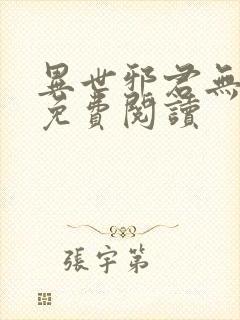 異世邪君無
免費閱讀
張宇第